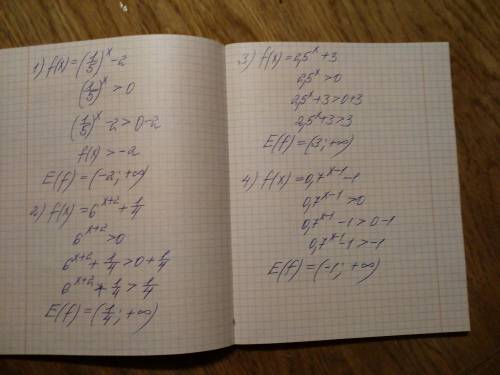 1) f(x)=(1/5)^x-2
(1/5)^x>0
(1/5)^x-2>0-2
f(x)>-2
E(f)=(-2;+∞)
2) f(x)=6^(x+2)+1/4
6^(x+2)>0
6^(x+2)+1/4>0+1/4
6^(x+2)+1/4>1/4
E(f)=(1/4;+∞)
3) f(x)=2,5^x+3
2,5^x>0
2,5^x+3>0+3
2,5^x+3>3
E(f)=(3;+∞)
4) f(x)=0,7^(x-1)-1
0,7^(x-1)>0
0,7^(x-1)-1>0-1
0,7^(x-1)-1>-1
E(f)=(-1;+∞)